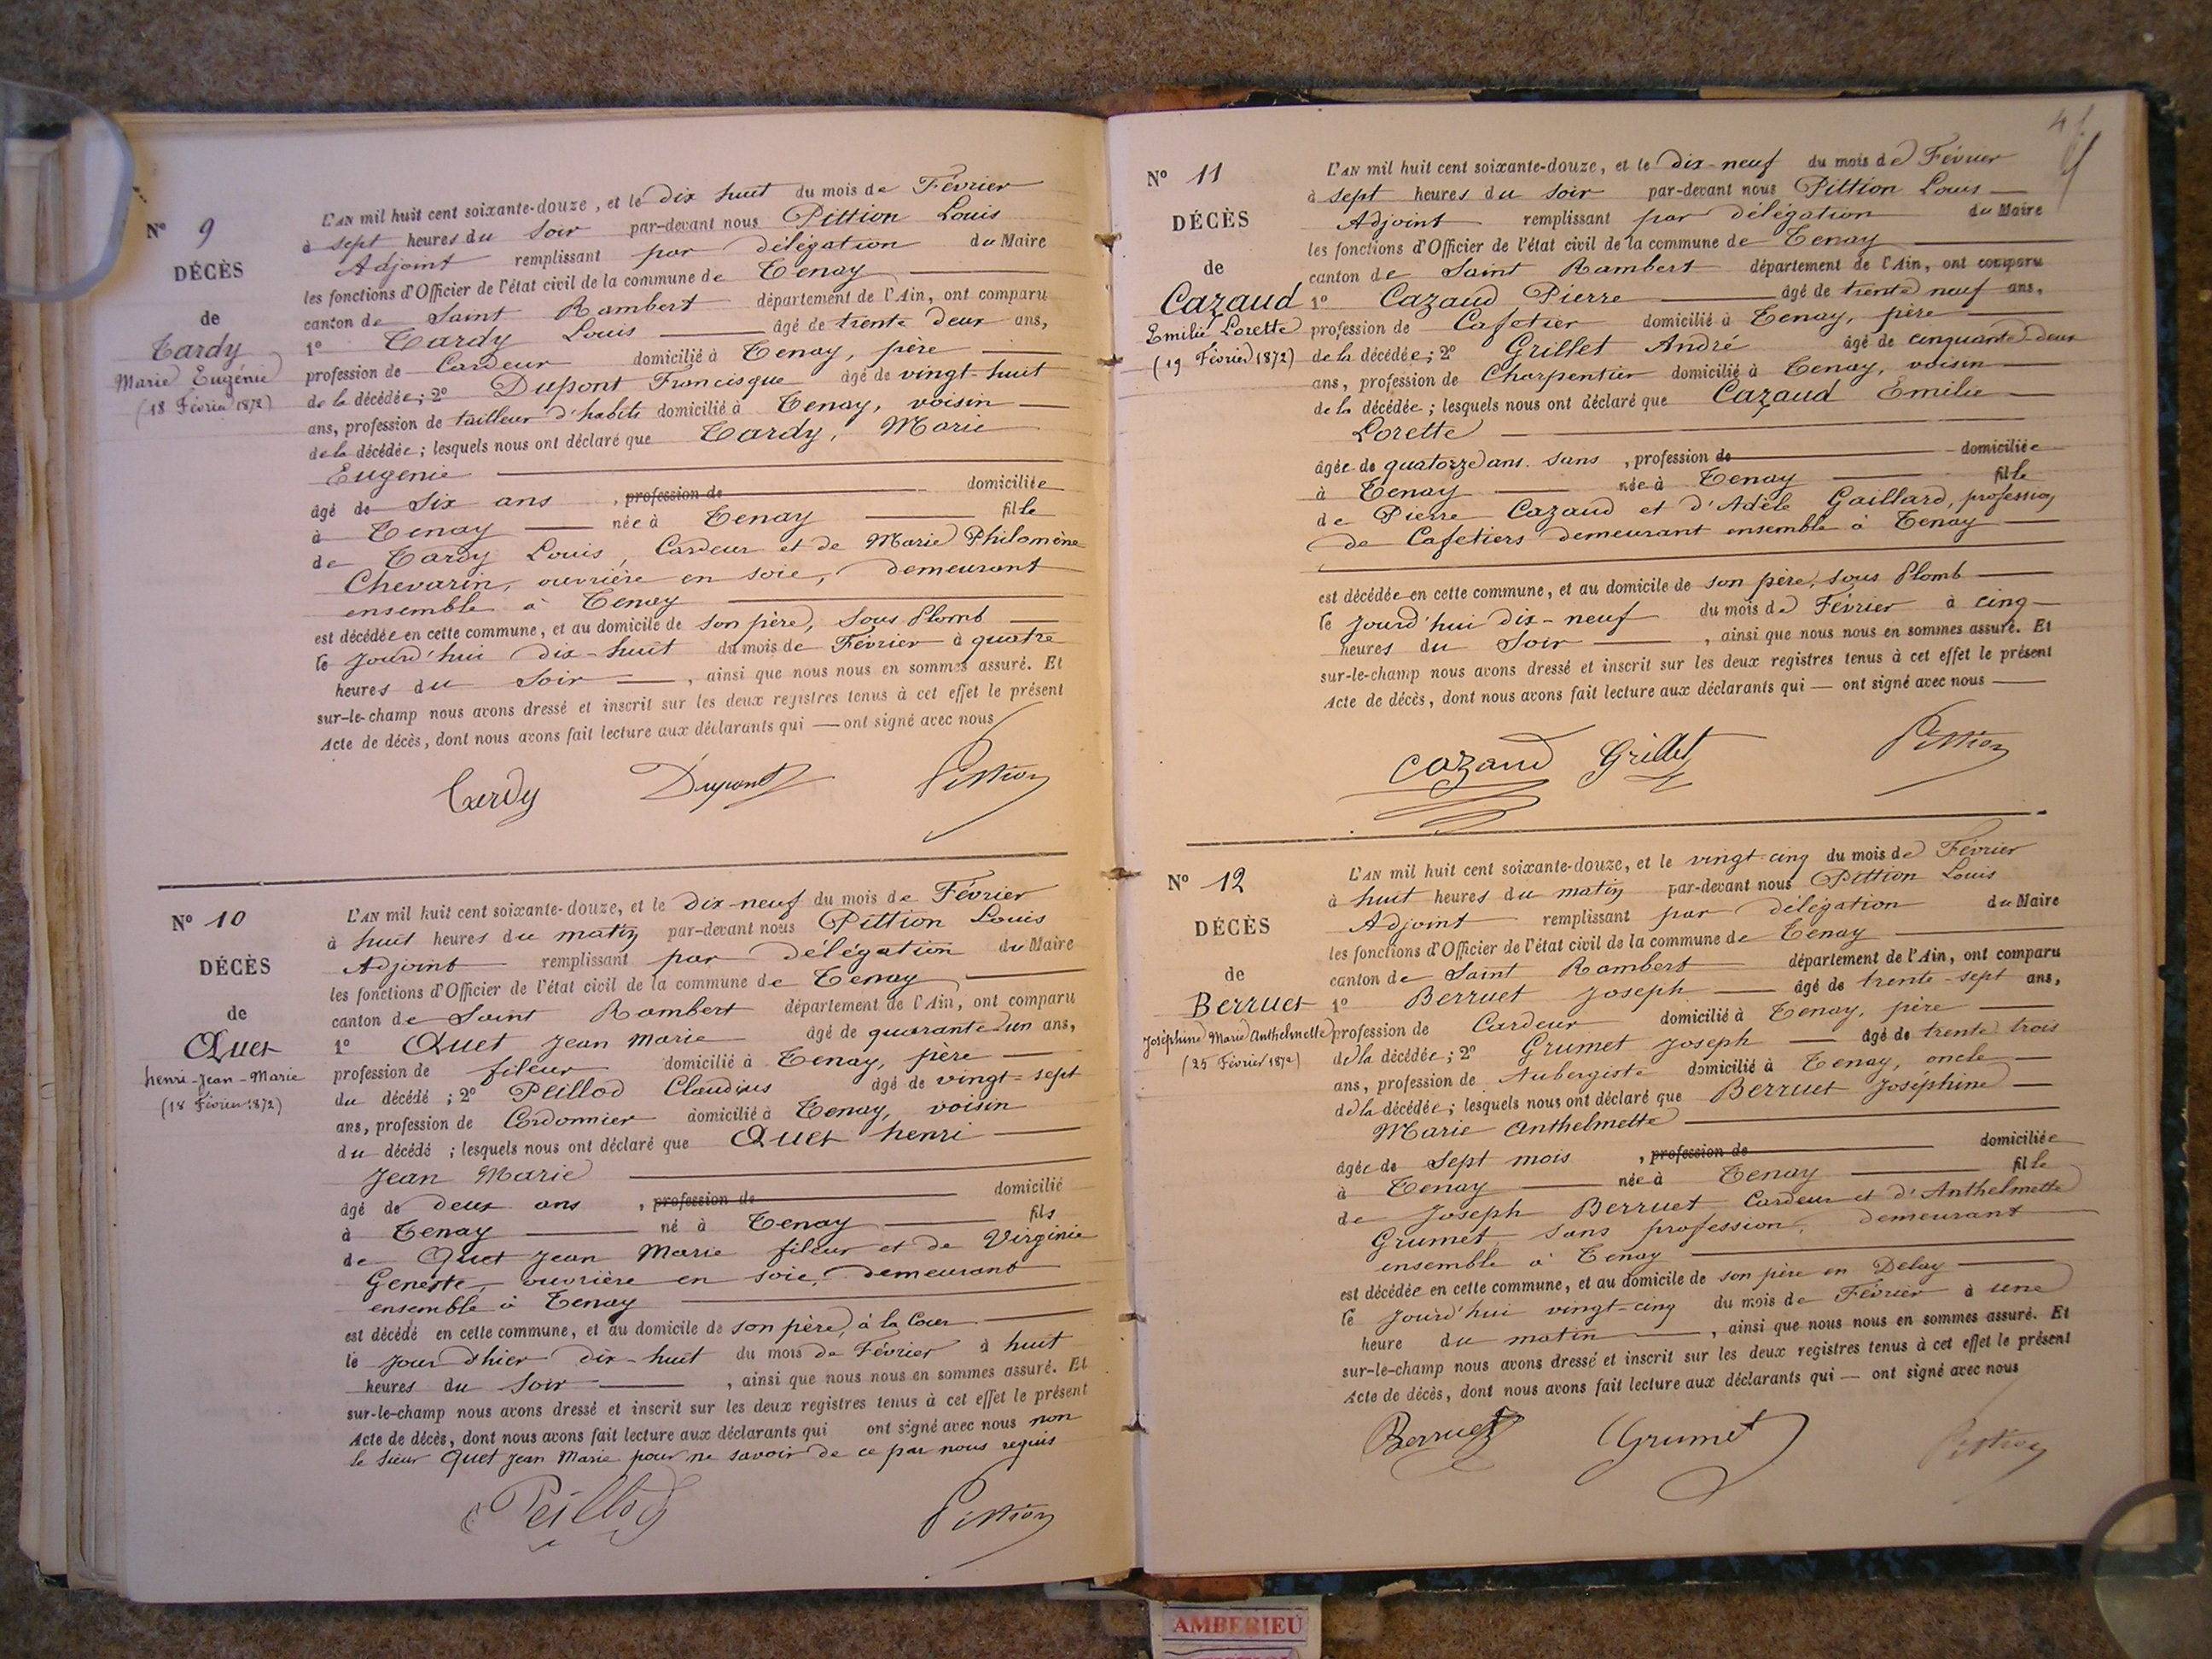 Nº 9
DÉCÈS
de
Tardy
Marie Eugénie
(18 Février 1872)
L'AN mil huit cent soixante-douze, et le dix huit du mois de Février
à sept heures du soir par-devant nous Pittion Louis
Adjoint remplissant par délégation du Maire
les fonctions d'Officier de l'état civil de la commune de Tenay
canton de Saint Rambert département de l'Ain, ont comparu
1º Tardy Louis âgé de trente deux ans,
profession de Cardeur domicilié à Tenay, père
de la décédée; 2º Dupont Francisque âgé de vingt-huit
ans, profession de tailleur d'habits domicilié à Tenay, voisin
de la décédée; lesquels nous ont déclaré que Tardy, Marie
Eugénie
âgé de Six ans, profession de domiciliée
à Tenay née à Tenay fille
de Tardy Louis, Cardeur et de Marie Philomène
Chevarin, ouvrière en soie, demeurant
ensemble à Tenay
est décédée en cette commune, et au domicile de son père, Sous Plomb
le jourd'hui dix-huit du mois de Février à quatre
heures du Soir, ainsi que nous nous en sommes assuré. Et
sur-le-champ nous avons dressé et inscrit sur les deux registres tenus à cet effet le présent
Acte de décès, dont nous avons fait lecture aux déclarants qui — ont signé avec nous
Tardy Dupont Pittion
Nº 10
DÉCÈS
de
Quet
henri-Jean-Marie
(18 Février 1872)
L'AN mil huit cent soixante-douze, et le dix-neuf du mois de Février
à huit heures du matin par-devant nous Pittion Louis
Adjoint remplissant par délégation du Maire
les fonctions d'Officier de l'état civil de la commune de Tenay
canton de Saint Rambert département de l'Ain, ont comparu
1º Quet Jean Marie âgé de quarante un ans,
profession de fileur domicilié à Tenay, père
du décédé; 2º Peillod Claudius âgé de vingt-sept
ans, profession de Cordonnier domicilié à Tenay, voisin
du décédé; lesquels nous ont déclaré que Quet henri
Jean Marie
âgé de deux ans, profession de domicilié
à Tenay né à Tenay fils
de Quet Jean Marie fileur et de Virginie
Geneste, ouvrière en soie, demeurant
ensemble à Tenay
est décédé en cette commune, et au domicile de son père, à la Cour
le jour d'hier dix-huit du mois de Février à huit
heures du Soir, ainsi que nous nous en sommes assuré. Et
sur-le-champ nous avons dressé et inscrit sur les deux registres tenus à cet effet le présent
Acte de décès, dont nous avons fait lecture aux déclarants qui ont signé avec nous non
le sieur Quet Jean Marie pour ne savoir de ce par nous requis
Peillod Pittion
Nº 11
DÉCÈS
de
Cazaud
Emilie Lorette
(19 Février 1872)
L'AN mil huit cent soixante-douze, et le dix-neuf du mois de Février
à sept heures du soir par-devant nous Pittion Louis
Adjoint remplissant par délégation du Maire
les fonctions d'Officier de l'état civil de la commune de Tenay
canton de Saint Rambert département de l'Ain, ont comparu
1º Cazaud Pierre âgé de trente neuf ans,
profession de Cafetier domicilié à Tenay, père
de la décédée; 2º Grillet André âgé de cinquante-deux
ans, profession de Charpentier domicilié à Tenay, voisin
de la décédée; lesquels nous ont déclaré que Cazaud Emilie
Lorette
âgée de quatorze ans. sans, profession de domiciliée
à Tenay née à Tenay fille
de Pierre Cazaud et d'Adèle Gaillard, profession
de Cafetiers demeurant ensemble à Tenay
est décédée en cette commune, et au domicile de son père, sous Plomb
le jourd'hui dix-neuf du mois de Février à cinq
heures du Soir, ainsi que nous nous en sommes assuré. Et
sur-le-champ nous avons dressé et inscrit sur les deux registres tenus à cet effet le présent
Acte de décès, dont nous avons fait lecture aux déclarants qui — ont signé avec nous
Cazaud Grillet Pittion
Nº 12
DÉCÈS
de
Berruet
Joséphine Marie Anthelmette
(25 Février 1872)
L'AN mil huit cent soixante-douze, et le vingt-cinq du mois de Février
à huit heures du matin par-devant nous Pittion Louis
Adjoint remplissant par délégation du Maire
les fonctions d'Officier de l'état civil de la commune de Tenay
canton de Saint Rambert département de l'Ain, ont comparu
1º Berruet Joseph âgé de trente-sept ans,
profession de Cardeur domicilié à Tenay, père
de la décédée; 2º Grumet Joseph âgé de trente trois
ans, profession de Aubergiste domicilié à Tenay, oncle
de la décédée; lesquels nous ont déclaré que Berruet Joséphine
Marie Anthelmette
âgée de Sept mois, profession de domiciliée
à Tenay née à Tenay fille
de Joseph Berruet Cardeur et d'Anthelmette
Grumet, sans profession, demeurant
ensemble à Tenay
est décédée en cette commune, et au domicile de son père en Delay
le jourd'hui vingt-cinq du mois de Février à une
heure du matin, ainsi que nous nous en sommes assuré. Et
sur-le-champ nous avons dressé et inscrit sur les deux registres tenus à cet effet le présent
Acte de décès, dont nous avons fait lecture aux déclarants qui — ont signé avec nous
Berruet Grumet Pittion
AMBERIEU